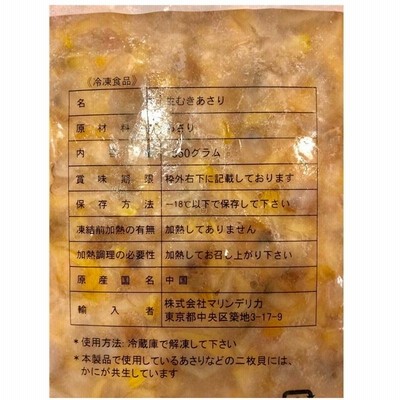 《冷凍食品》
名 生むきあさり
原材料 あさり
内 50グラム
賞味期限 枠外右下に記載しております
保存方法 −18℃以下で保存して下さい
凍結前加熱の有無 加熱してありません
加熱調理の必要性 加熱してお召し上がり下さい
原産国名 中国
輸入者 株式会社マリンデリカ
東京都中央区築地3-17-9
*使用方法:冷蔵庫で解凍して下さい
*本製品で使用しているあさりなどの二枚貝には、
かにが共生しています